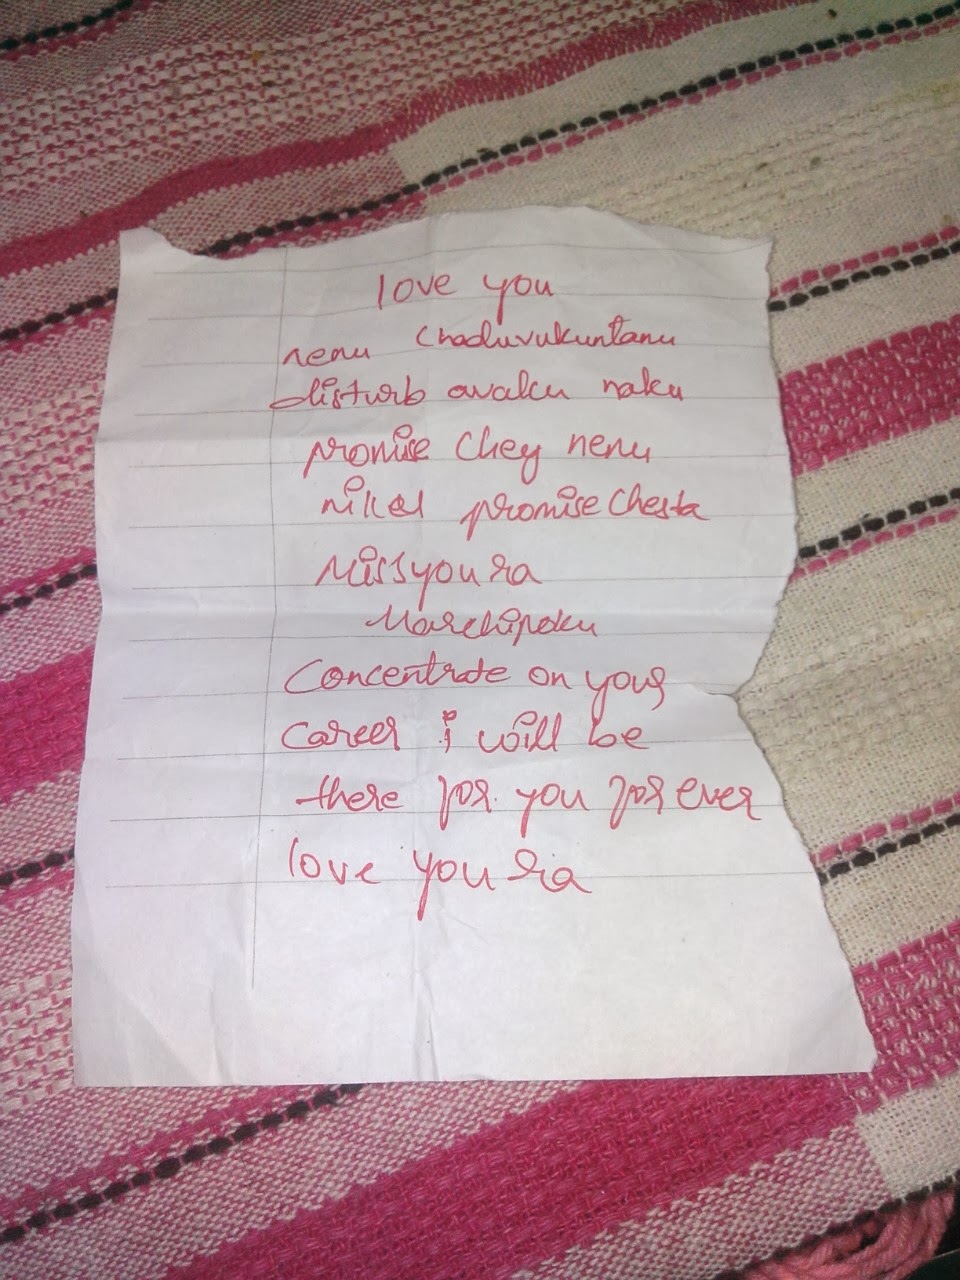 love you
nenu Chaduvukuntanu
disturb avaku naku
promise Chey nenu
nikel promise Chesta
Miss you ra
Marchipoku
Concentrate on your
Career i will be
there for you for ever
love you ra